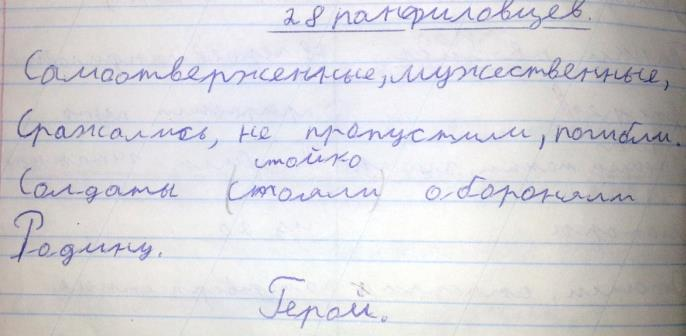 28 панфиловцев.
Самоотверженные, мужественные,
Сражались, не пропустили, погибли.
стойко
Солдаты (стояли) обороняли
Родину.
Герой.